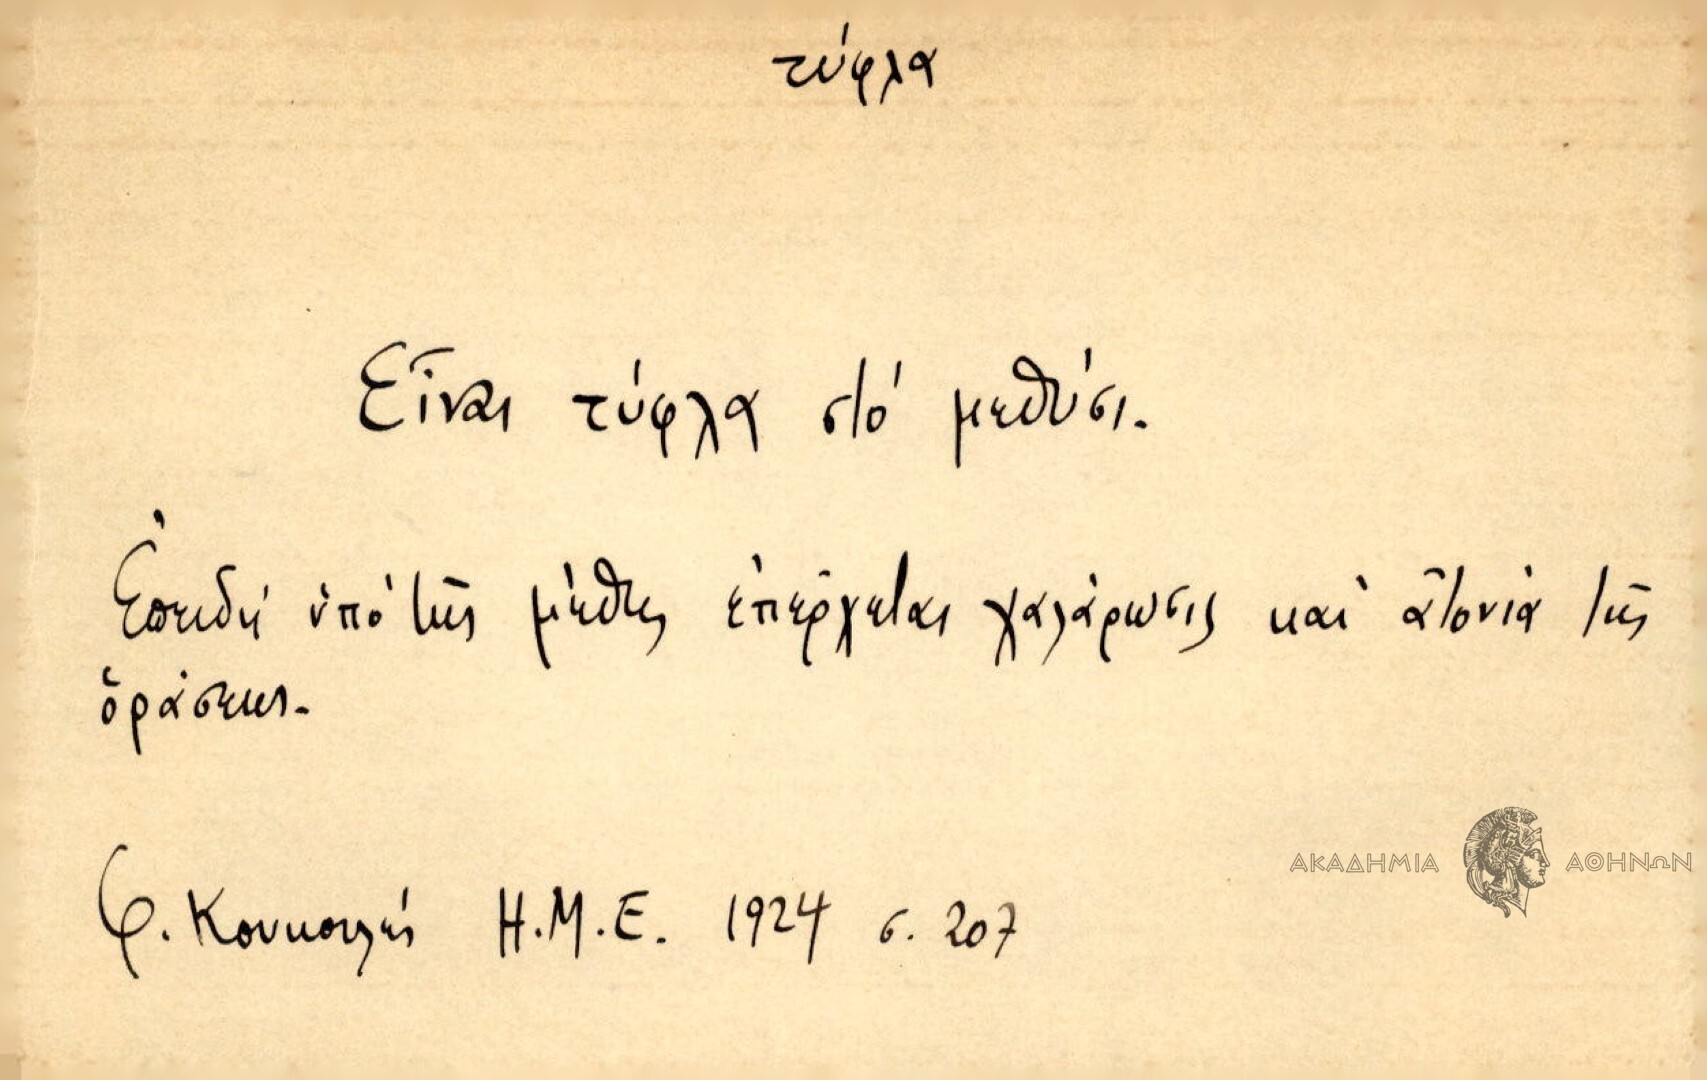 τύφλα
Εἶναι τύφλα στό μεθύσι.
Ἐπειδή ὑπό τῆς μέθης ἐπέρχεται χαλάρωσις καί ἀτονία τῆς
ὁράσεως.
Φ. Κουκουλές Η.Μ.Ε. 1924 σ. 207
ΑΚΑΔΗΜΙΑ ΑΘΗΝΩΝ